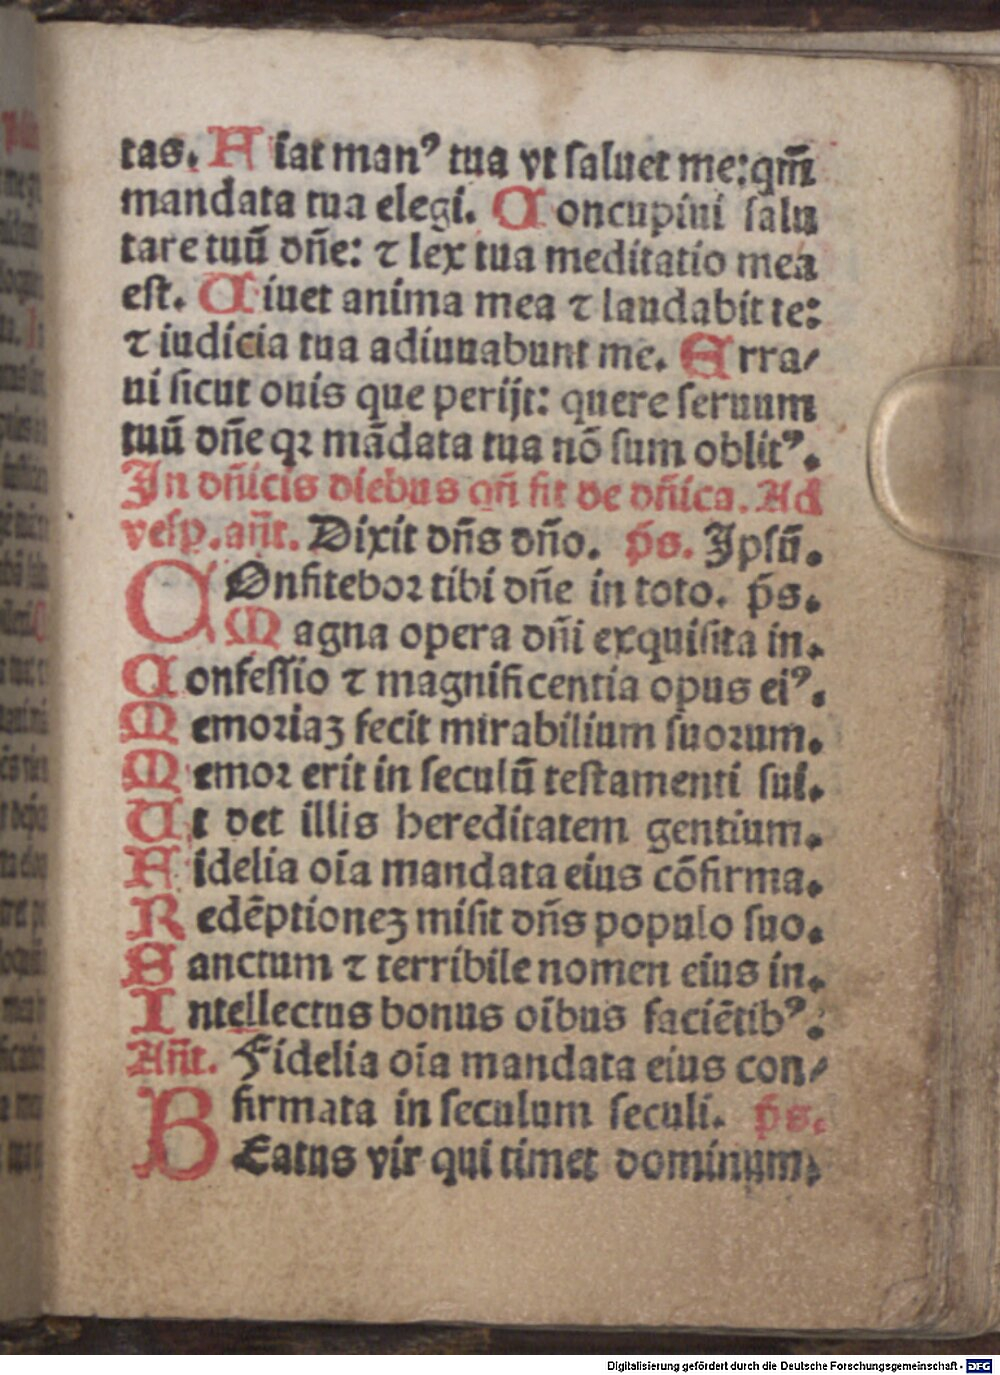 tas. Fiat manꝰ tua vt saluet me: qm̃
mandata tua elegi. Concupiui salu
tare tuũ dñe: ⁊ lex tua meditatio mea
est. Uiuet anima mea ⁊ laudabit te:
⁊ iudicia tua adiuuabunt me. Erra/
ui sicut ouis que perijt: quere seruum
tuũ dñe qꝛ mãdata tua nõ sum oblitꝰ.
In dñicis diebus qñ fit de dñica. Ad
vesp. añt. Dixit dñs dño. p̃s. Ipsũ.
COnfitebor tibi dñe in toto. p̃s.
Magna opera dñi exquisita in.
Confessio ⁊ magnificentia opus eiꝰ.
Memoriaꝫ fecit mirabilium suorum.
Memor erit in seculũ testamenti sui.
Ut det illis hereditatem gentium.
Fidelia oĩa mandata eius cõfirma.
Redẽptioneꝫ misit dñs populo suo.
Sanctum ⁊ terribile nomen eius in.
Intellectus bonus oĩbus faciẽtibꝰ.
Añt. Fidelia oĩa mandata eius con/
firmata in seculum seculi. p̃s.
BEatus vir qui timet dominum.
Digitalisierung gefördert durch die Deutsche Forschungsgemeinschaft - DFG